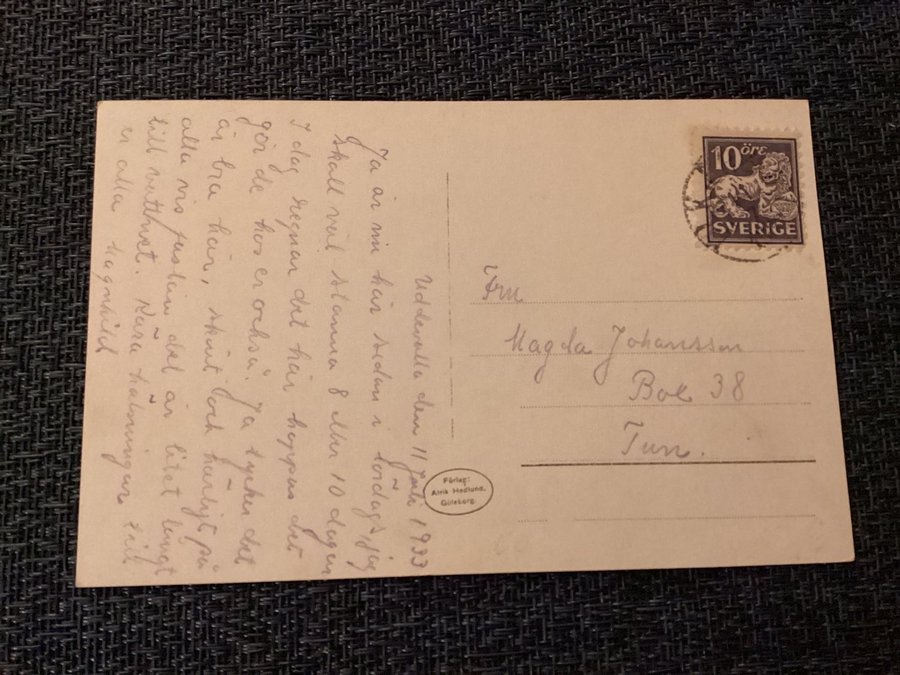 Uddevalla den 11 juli 1933
Ja är nu här sedan i lördags, jag
skall väl stanna 8 eller 10 dagar
I dag regnar det här hoppas det
gör de hos er också. Ja tycker det
är bra här, skönt och härligt på
alla vis det är litet långt
till vattnet. Kära hälsningar till
er alla Ragnhild
10 öre
SVERIGE
Fru
Magda Johansson
Box 38
Tun.
Förlag:
Alrik Hedlund,
Göteborg.